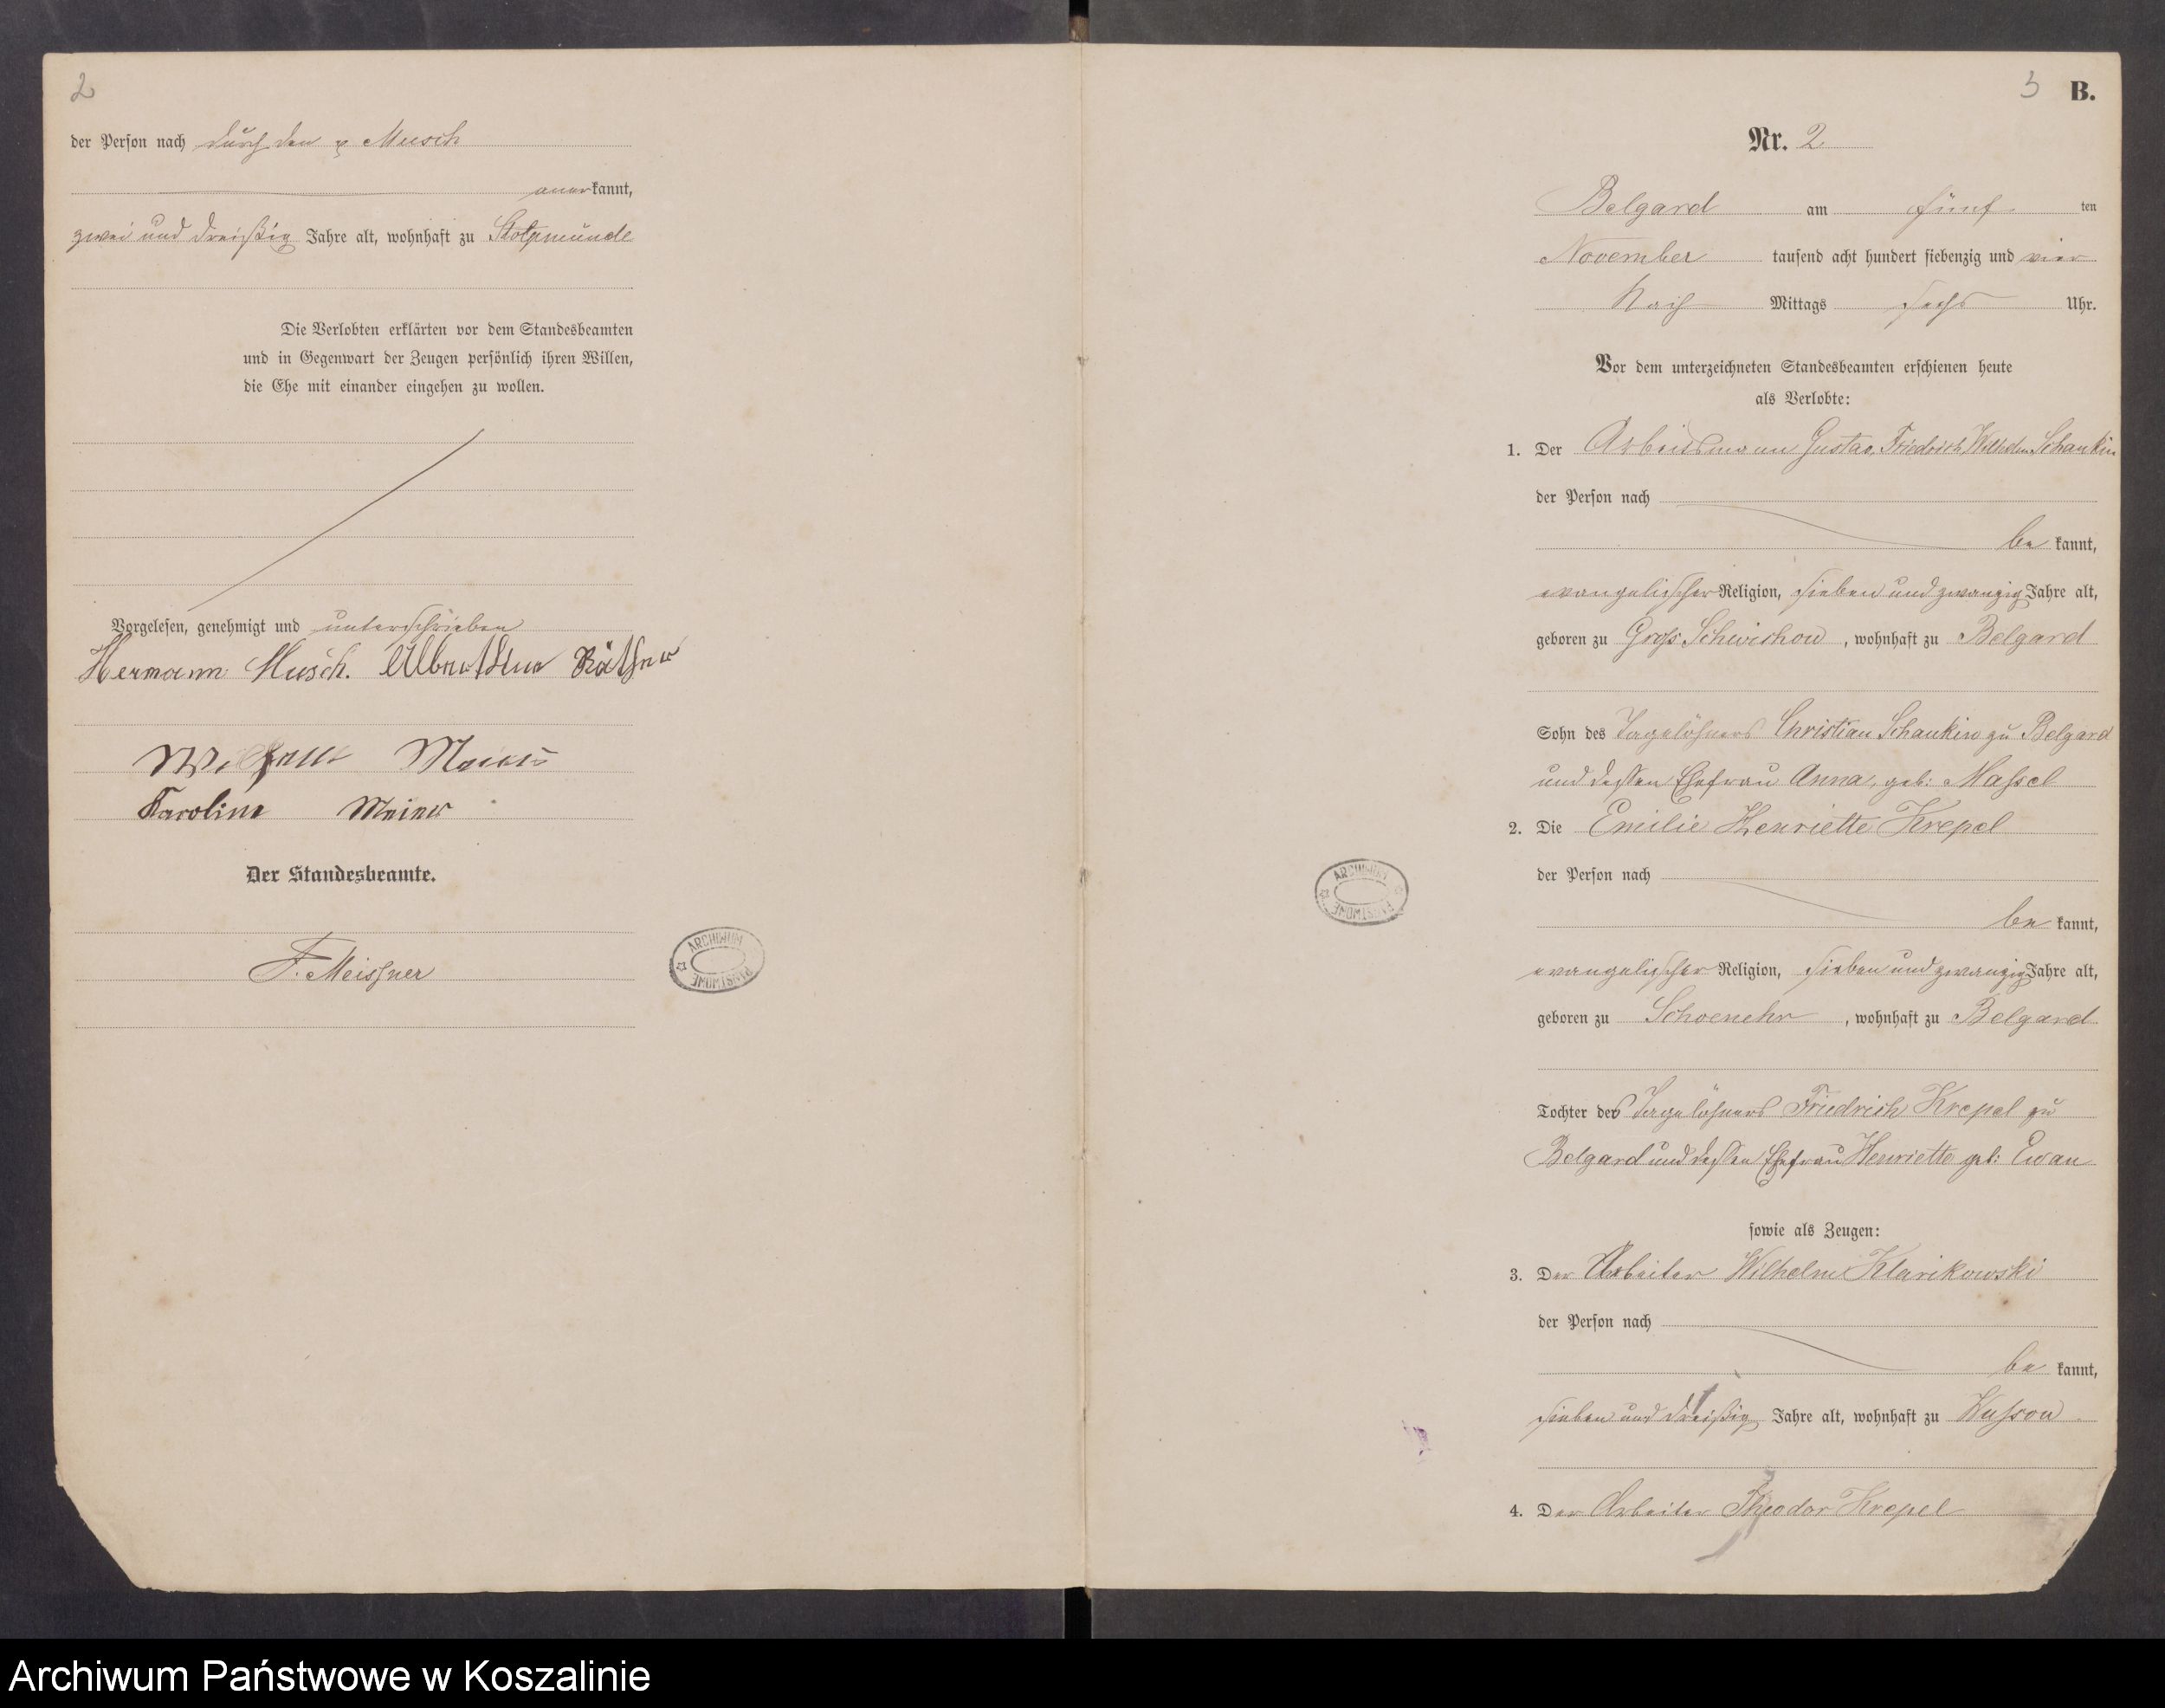 2
der Person nach durch den p Musch
anerkannt,
zwei und dreißig Jahre alt, wohnhaft zu Stolpmünde
Die Verlobten erklärten vor dem Standesbeamten
und in Gegenwart der Zeugen persönlich ihren Willen,
die Ehe mit einander eingehen zu wollen.
Vorgelesen, genehmigt und unterschrieben
Hermann Musch. Albertine Räthner
Karoline Meier
Der Standesbeamte.
F. Meissner
ARCHIWUM PAŃSTWOWE
3 B.
Nr. 2
Belgard am fünf ten
November tausend acht hundert siebenzig und vier
Nach Mittags sechs Uhr.
Vor dem unterzeichneten Standesbeamten erschienen heute
als Verlobte:
1. Der Arbeitsmann Gustav Friedrich Wilhelm Schankin
der Person nach
be kannt,
evangelischer Religion, sieben und zwanzig Jahre alt,
geboren zu Gross Schwirsen, wohnhaft zu Belgard
Sohn des Tagelöhners Christian Schankin zu Belgard
und dessen Ehefrau Anna, geb: Massel
2. Die Emilie Henriette Krepel
der Person nach
be kannt,
evangelischer Religion, sieben und zwanzig Jahre alt,
geboren zu , wohnhaft zu Belgard
Tochter des Tagelöhners Friedrich Krepel zu
Belgard und dessen Ehefrau Henriette geb: Ewan
sowie als Zeugen:
3. Der Arbeiter Wilhelm Klarikowski
der Person nach
be kannt,
sieben und dreißig Jahre alt, wohnhaft zu Kussow
4. Der Arbeiter Theodor Krepel
ARCHIWUM PAŃSTWOWE
Archiwum Państwowe w Koszalinie